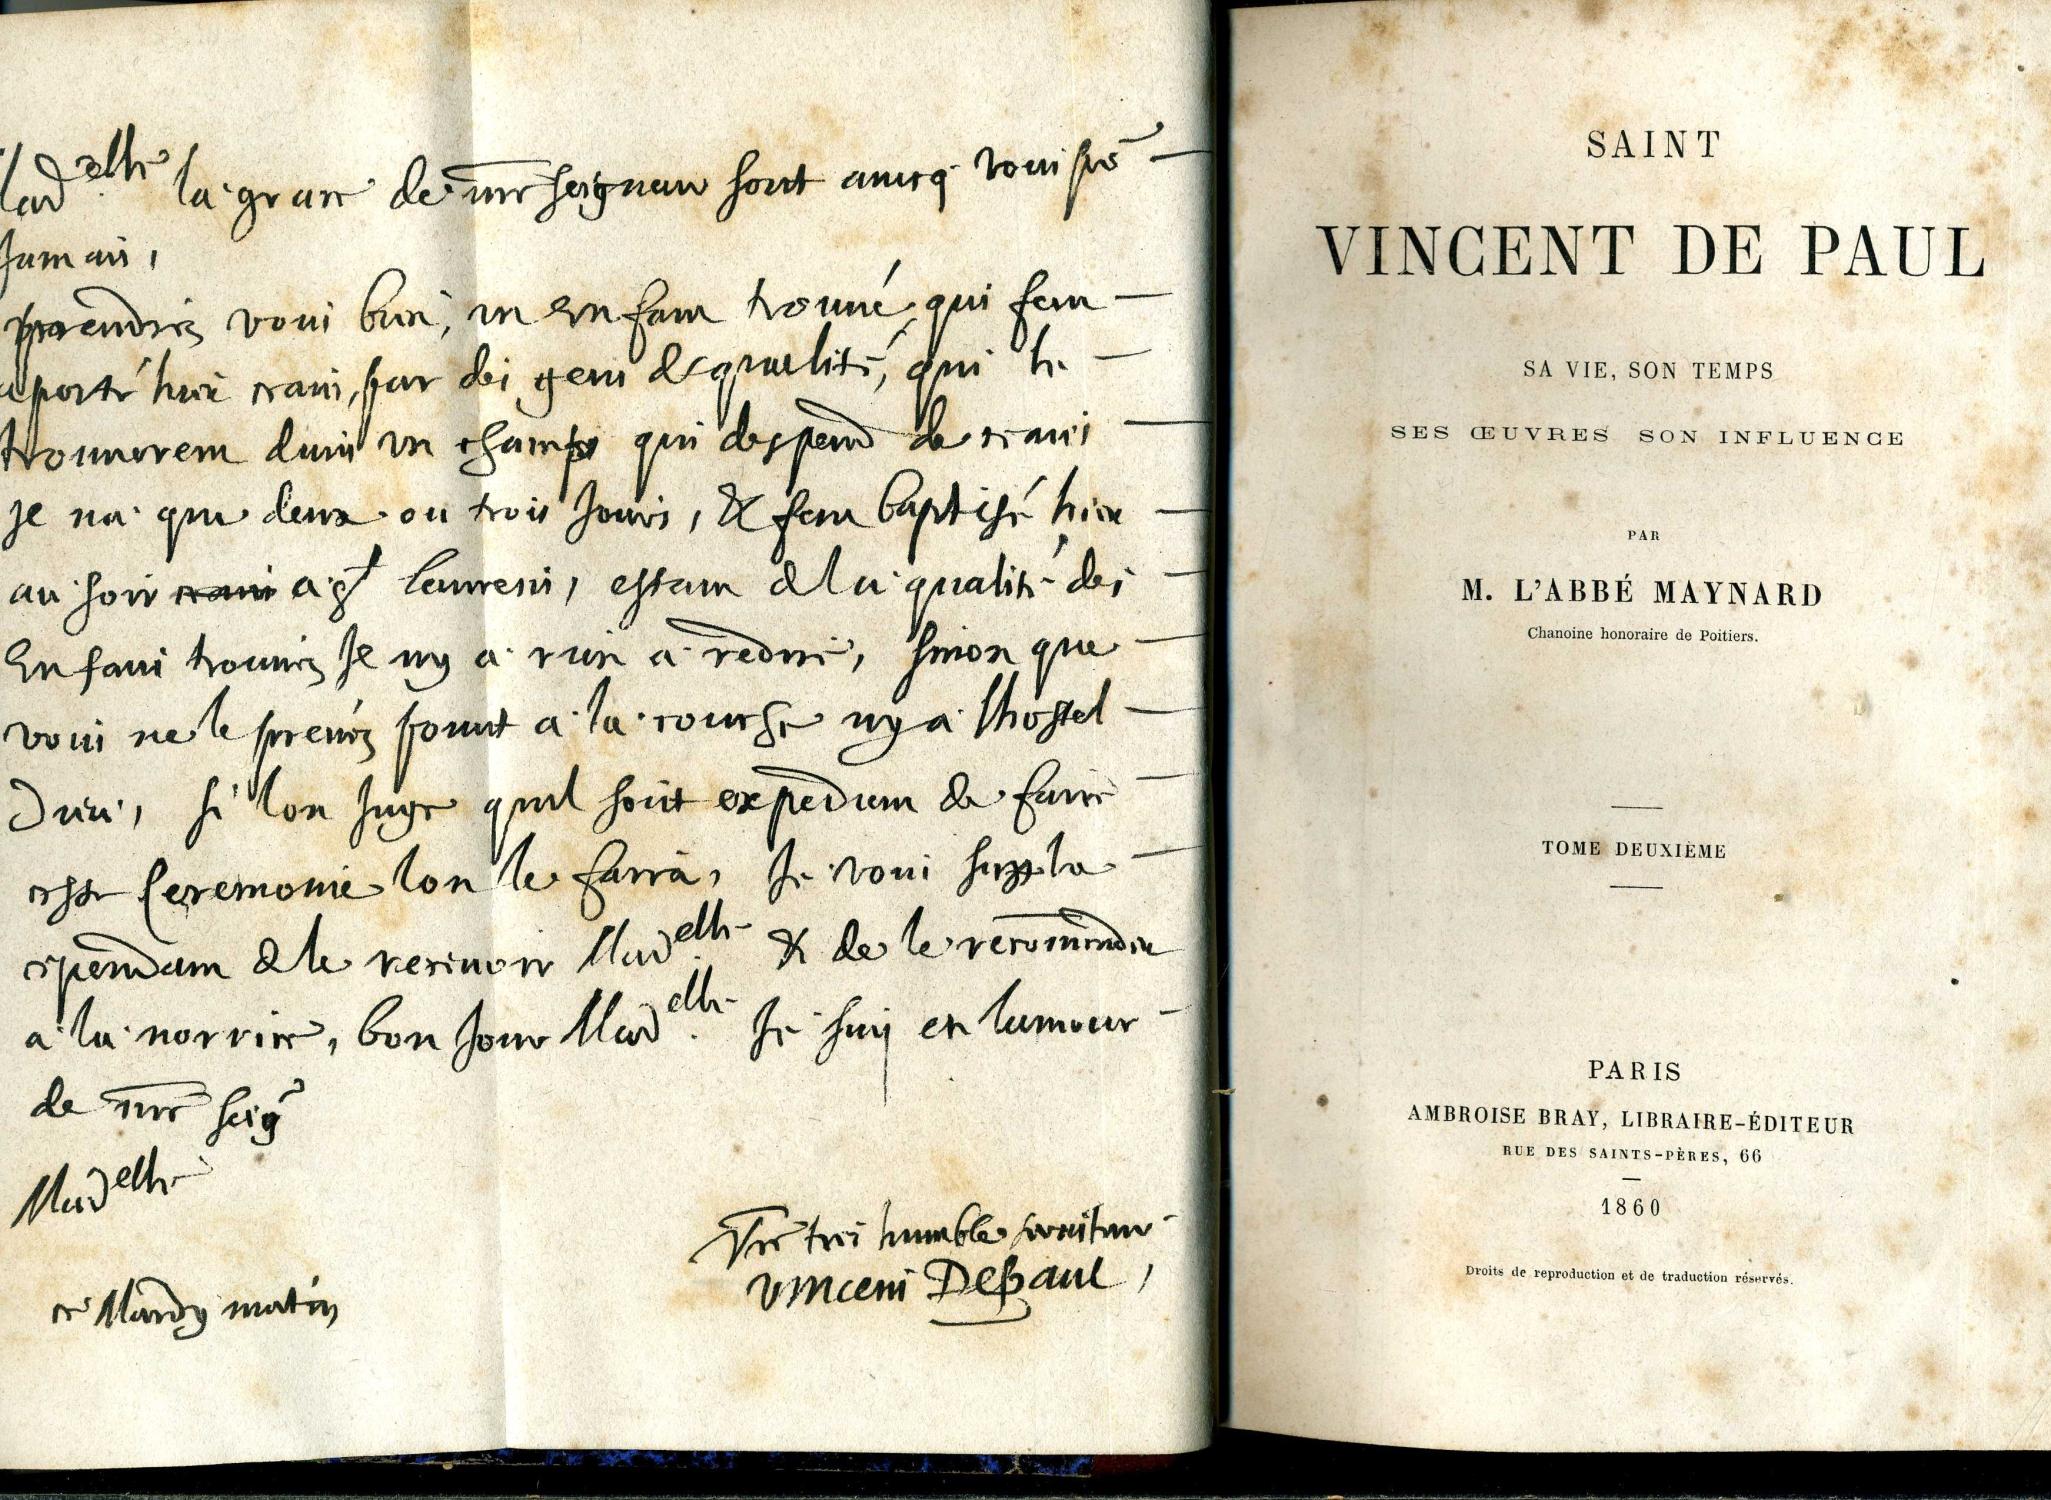 Mad.elle la grace de nre seigneur soit avecq vous pr
Jamais,
prendrez vous bien, un Enfant trouvé, qui feut
aporté hier ceans, par des gens de qualité, qui le
trouverent dans un champs qui despend de ceans
Je na que deux ou trois Jours, & feut baptisé hier
au soir ceans a St Laurens, estant de la qualité des
Enfans trouvez Je ny a rien a redire, sinon que
vous ne le prenez point a la couche ny a lhostel
Dieu, si lon Juge quil soit expediant de faire
ceste Ceremonie lon le faira, Je vous supplie
cependant de le recevoir Mad.elle & de le recommander
a la norrice, bon Jour Mad.elle Je suis en lamour
de nre seigr
Madelle
Vre tres humble serviteur
Vincent Depaul,
ce Mardy matin
SAINT
VINCENT DE PAUL
SA VIE, SON TEMPS
SES ŒUVRES SON INFLUENCE
PAR
M. L'ABBÉ MAYNARD
Chanoine honoraire de Poitiers.
TOME DEUXIÈME
PARIS
AMBROISE BRAY, LIBRAIRE-ÉDITEUR
RUE DES SAINTS-PÈRES, 66
1860
Droits de reproduction et de traduction réservés.